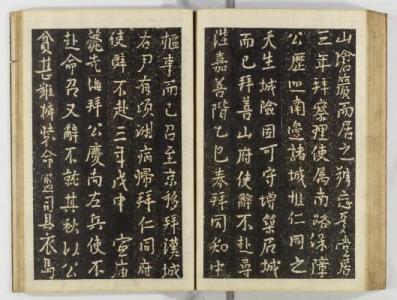 山陰巖而居之
三年拜察理使屬南路保障
公歷巡南邊諸城惟仁同之
天生城險固可守增築居城
而已拜善山府使辭不赴尋
陞嘉善階乙巳春拜同知中
樞事而已召至京移拜漢城
右尹有頃謝病歸拜仁同府
使辭不赴三年戊申 宣廟
薨光海拜公慶尚左兵使不
赴命召又辭不就其秋以公
貧甚 命 司具衣馬